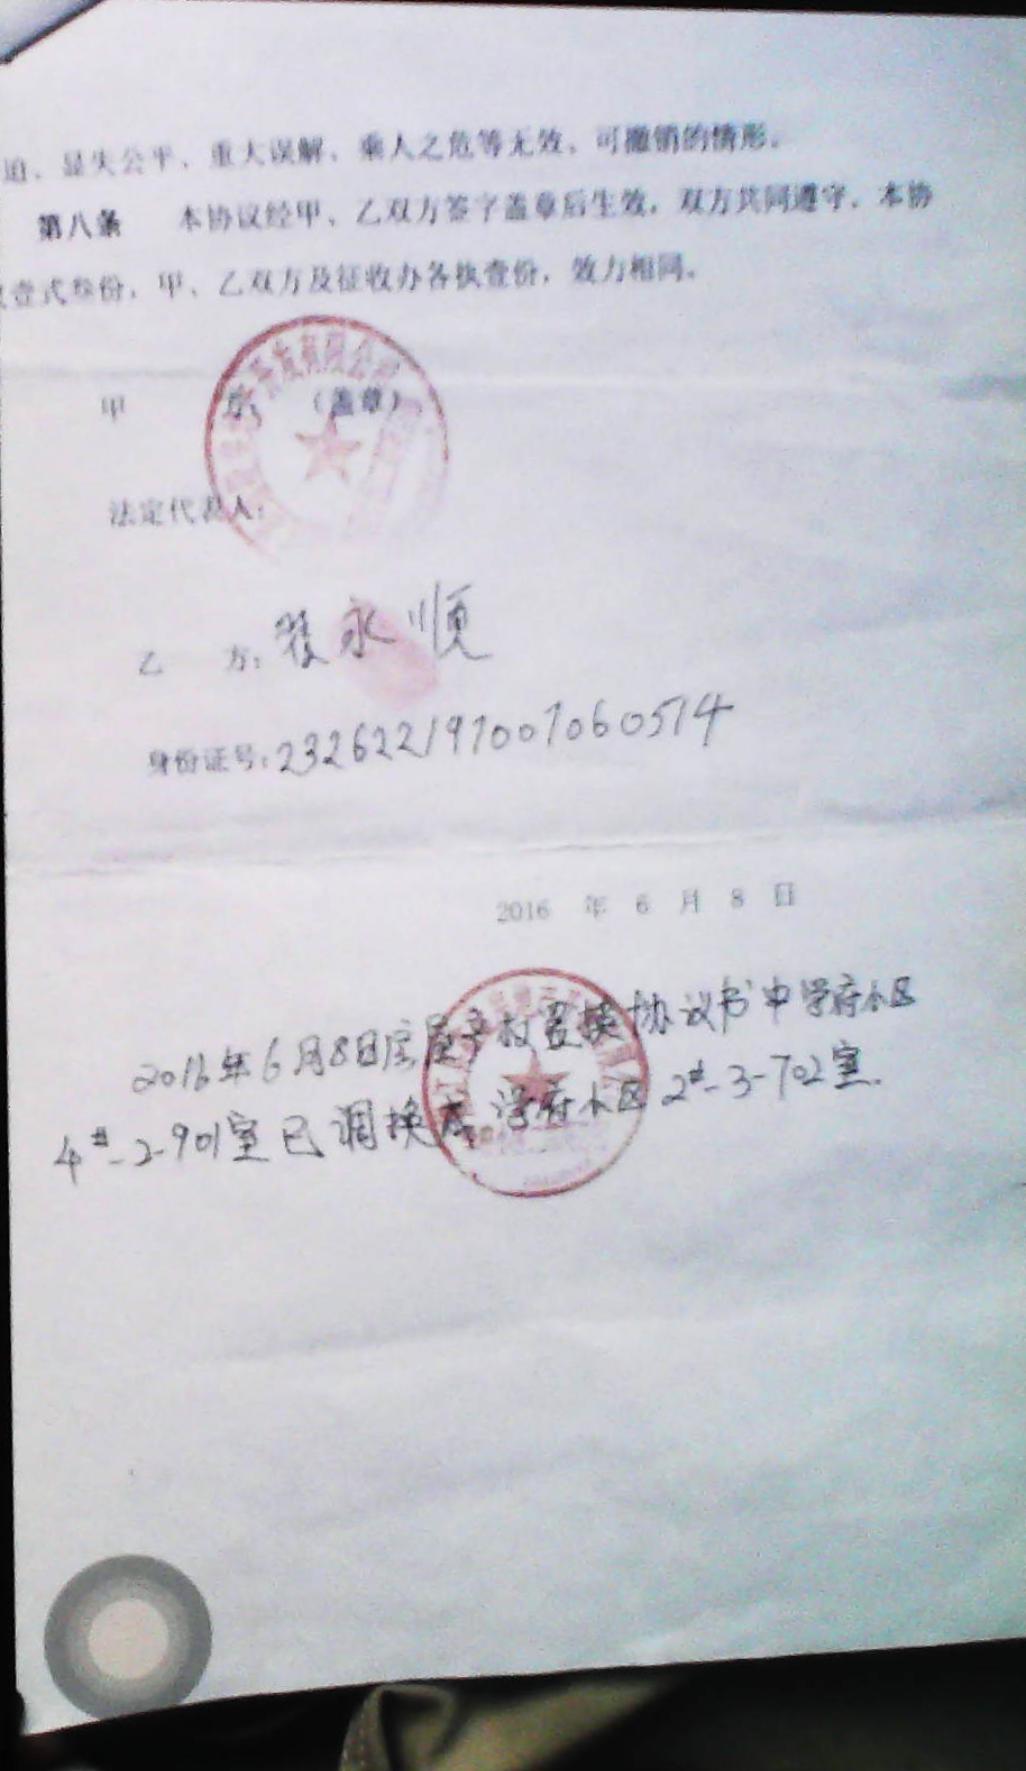 迫、显失公平、重大误解、乘人之危等无效、可撤销的情形。
第八条 本协议经甲、乙双方签字盖章后生效，双方共同遵守。本协
壹式叁份，甲、乙双方及征收办各执壹份，效力相同。
开发有限公司
甲 方 （盖章）
法定代表人：
乙 方： 永顺
身份证号：232622197007060514
2016 年 6 月 8 日
2016年6月8日房屋产权置换协议书中学府小区
4#-2-901室已调换为学府小区2#-3-702室.